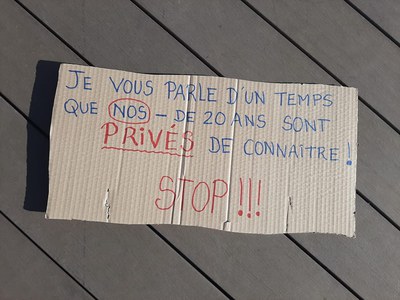 JE VOUS PARLE D'UN TEMPS
QUE NOS – DE 20 ANS SONT
PRiVÉS DE CONNAITRE !
STOP !!!